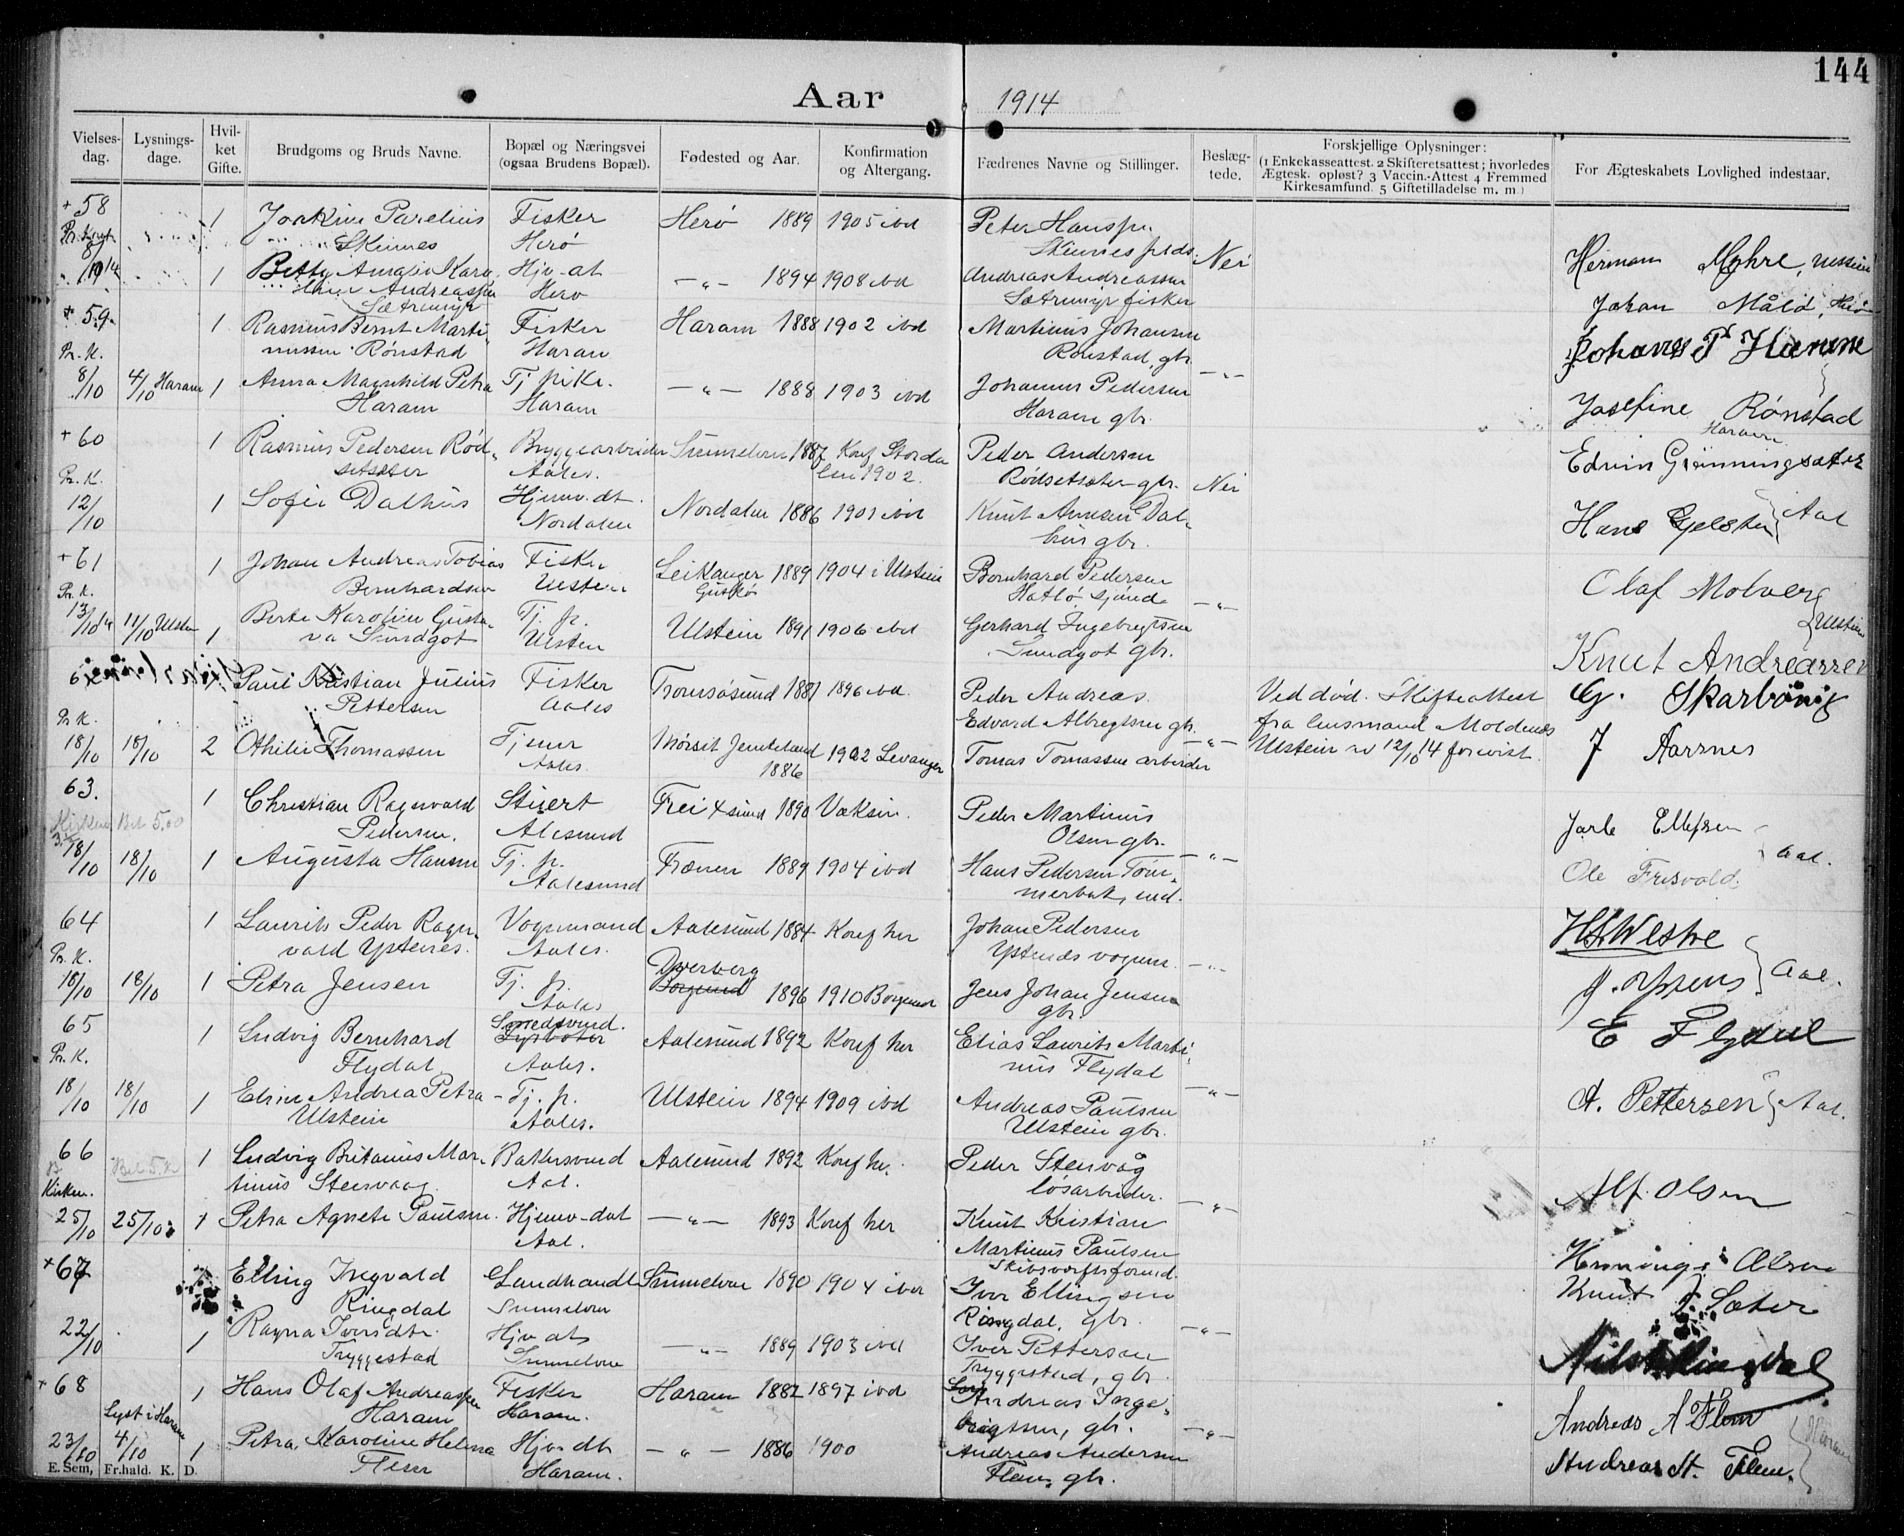 144
Aar 1914
Vielses-dag. Lysnings-dage. Hvil-ket Gifte. Brudgoms og Bruds Navne. Bopæl og Næringsvei (ogsaa Brudens Bopæl). Fødested og Aar. Konfirmation og Altergang. Fædrenes Navne og Stillinger. Beslæg-tede. Forskjellige Oplysninger: (1 Enkekasseattest. 2 Skifteretsattest; hvorledes Ægtesk. opløst? 3 Vaccin.-Attest 4 Fremmed Kirkesamfund. 5 Giftetilladelse m. m.) For Ægteskabets Lovlighed indestaar.
+58 1 Joakim Parelius Fisker Herø 1889 1905 ibd Peter Hansen
8/10 Skeines Herø Skeines Nei Herman Myhre, Ulstein
1 Betty Amalie Karo Hjv. dt —"— 1894 1908 ibd Andreas Andreassen
line Andreassen Herø Sætremyr fisker Johan Målø, Herø
Sætremyr
+59. 1 Rasmus Bernt Marti- Fisker Haram 1888 1902 ibd Martinus Johansen
Pr. K. nussen Rønstad Haram Rønstad, gbr. —"— Johannes P Haram
8/10 4/10 Haram 1 Anna Magnhild Petra Tj. pike. —"— 1888 1903 ibd Johannes Pedersen
Haram Haram Haram gbr. Josefine Rønstad
Haram
+60 1 Rasmus Pedersen Rød- Bryggearbeider Sunnelven 1887 Konf Storda
Pr. K. setsæter Aales. len 1902. Peder Andersen
Rødsetsæter gbr. Nei Edvin Grønningsæter
12/10 1 Sofie Dalhus Hjemv. dt. Nordalen 1886 1901 ibd Knut Arnesen Dal-
Nordalen hus gbr. Hans Gjelsten Aal
+61 1 Johan Andreas Tobias Fisker Leikanger 1889 1904 i Ulstein Bernhard Pedersen
Pr. K. Bernhardsen Ulstein Gurskø Hatlø, gbr. —"— Olaf Molvær
13/10 11/10 Ulsten 1 Berte Karoline Gusta- Tj. p. Ulstein 1891 1906 ibd Gerhard Ingebrigtsen
va Sundgot Ulsten Sundgot gbr. Ulstein
Knut Andreassen
Paul Kristian Julius Fisker Tromsøsund 1881 1896 ibd. Peder Andreas Ved død. Skifteattest G. Skarbøvig
Pr K. Pettersen Aales Edvard Albregtsen gbr. —"— fra lensmand Moldenæs
18/10 18/10 2 Othilie Thomassen Tjener Mørsit Jemteland 1902 Levanger Tomas Tomassen arbeider Ulstein av 12/10 14 forevist. J Aarsnes
Aales 1886
63. 1 Christian Ragnvald Stuert Frei Xsund 1890 Vaksin. Peder Martinus
Kirken Bet 5.00 Pedersen. Alesund Olsen gbr. —"— Jarle Ellefsen
18/10 18/10 1 Augusta Hansen Tj. p. Frænen 1889 1904 ibd Hans Pedersen Tøm- Aal.
Aalesund merbak, ind. Ole Frisvold
64 1 Laurits Peder Ragn- Vognmand Aalesund 1884 Konf her Johan Pedersen
Pr. K. vald Ystenes. Aales. Ystenes vognm. —"— H. Westre
18/10 18/10 1 Petra Jensen Tj. p. Dverberg Borgund 1896 1910 Borgund Jens Johan Jensen
Aales gbr. Aal.
65 1 Ludvig Bernhard Smedsvend. Fyrbøter Aalesund 1892 Konf her Elias Laurits Marti-
Pr. K. Flydal Aales. nus Flydal —"— E Flydal
18/10 18/10 1 Eline Andrea Petra Tj. p. Ulstein 1894 1909 ibd Andreas Paulsen
Ulstein Aales. Ulstein gbr. A. Pettersen Aal.
66 1 Ludvig Britanius Mar- Bakersvend Aalesund 1892 Konf her Peder Stenvåg
Kirken. Bet 5.00 tinus Stenvaag. Aal. løsarbeider. —"— Alf. Olsen
25/10 25/10 1 Petra Agnete Paulsen. Hjemv-dat —"— 1893 Konf her Knut Kristian
Aal. Martinus Paulsen Henning Olsen
Skibsværftsformd.
+67 Elling Ingvald Landhandler Sunnelven 1890 1904 ibd Iver Ellingsen Knut I. Sæter
Ringdal Sunnelven Ringdal, gbr.
22/10 1 Ragna Iversdtr. Hjv dt —"— 1889 1903 ibd Iver Pettersen —"— Nils Ringdal
Tryggestad Sunnelven Tryggestad, gbr.
+68 1 Hans Olaf Andreassen Fisker Haram 1882 1897 ibd Andreas Inge-
Lyst i Haram Haram Haram. brigtsen, gbr. —"— Andreas A Flem
23/10 4/10 1 Petra Karoline Helena Hjv. dt —"— 1886 1900 Andreas Andersen Haram
Flem Haram. Flem, gbr. Andreas St. Flem.
E. Sem, Fr.hald. K. D.